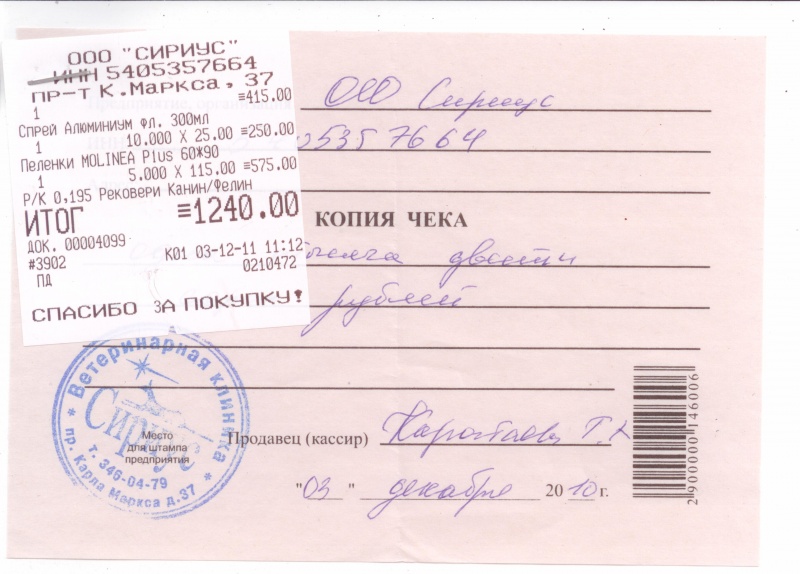 ООО "СИРИУС"
ИНН 5405357664
ПР-Т К.Маркса, 37
1 ≡415.00
Спрей Алюминиум фл. 300мл
1 10.000 X 25.00 ≡250.00
Пеленки MOLINEA Plus 60*90
1 5.000 X 115.00 ≡575.00
Р/К 0,195 Рековери Канин/Фелин
ИТОГ ≡1240.00
ДОК. 00004099
#3902 К01 03-12-11 11:12
ПД 0210472
СПАСИБО ЗА ПОКУПКУ!
ООО Сириус
5357664
КОПИЯ ЧЕКА
тысяча двести
рублей
Ветеринарная клиника
Сириус
т. 346-04-79
пр. Карла Маркса д.37
Место
для штампа
предприятия
Продавец (кассир) Т.
"03" декабря 2010 г.
2 900000 146006